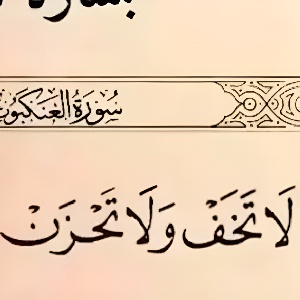 سُورَةُ العَنكَبُوت
لَا تَخَفْ وَلَا تَحْزَنْ